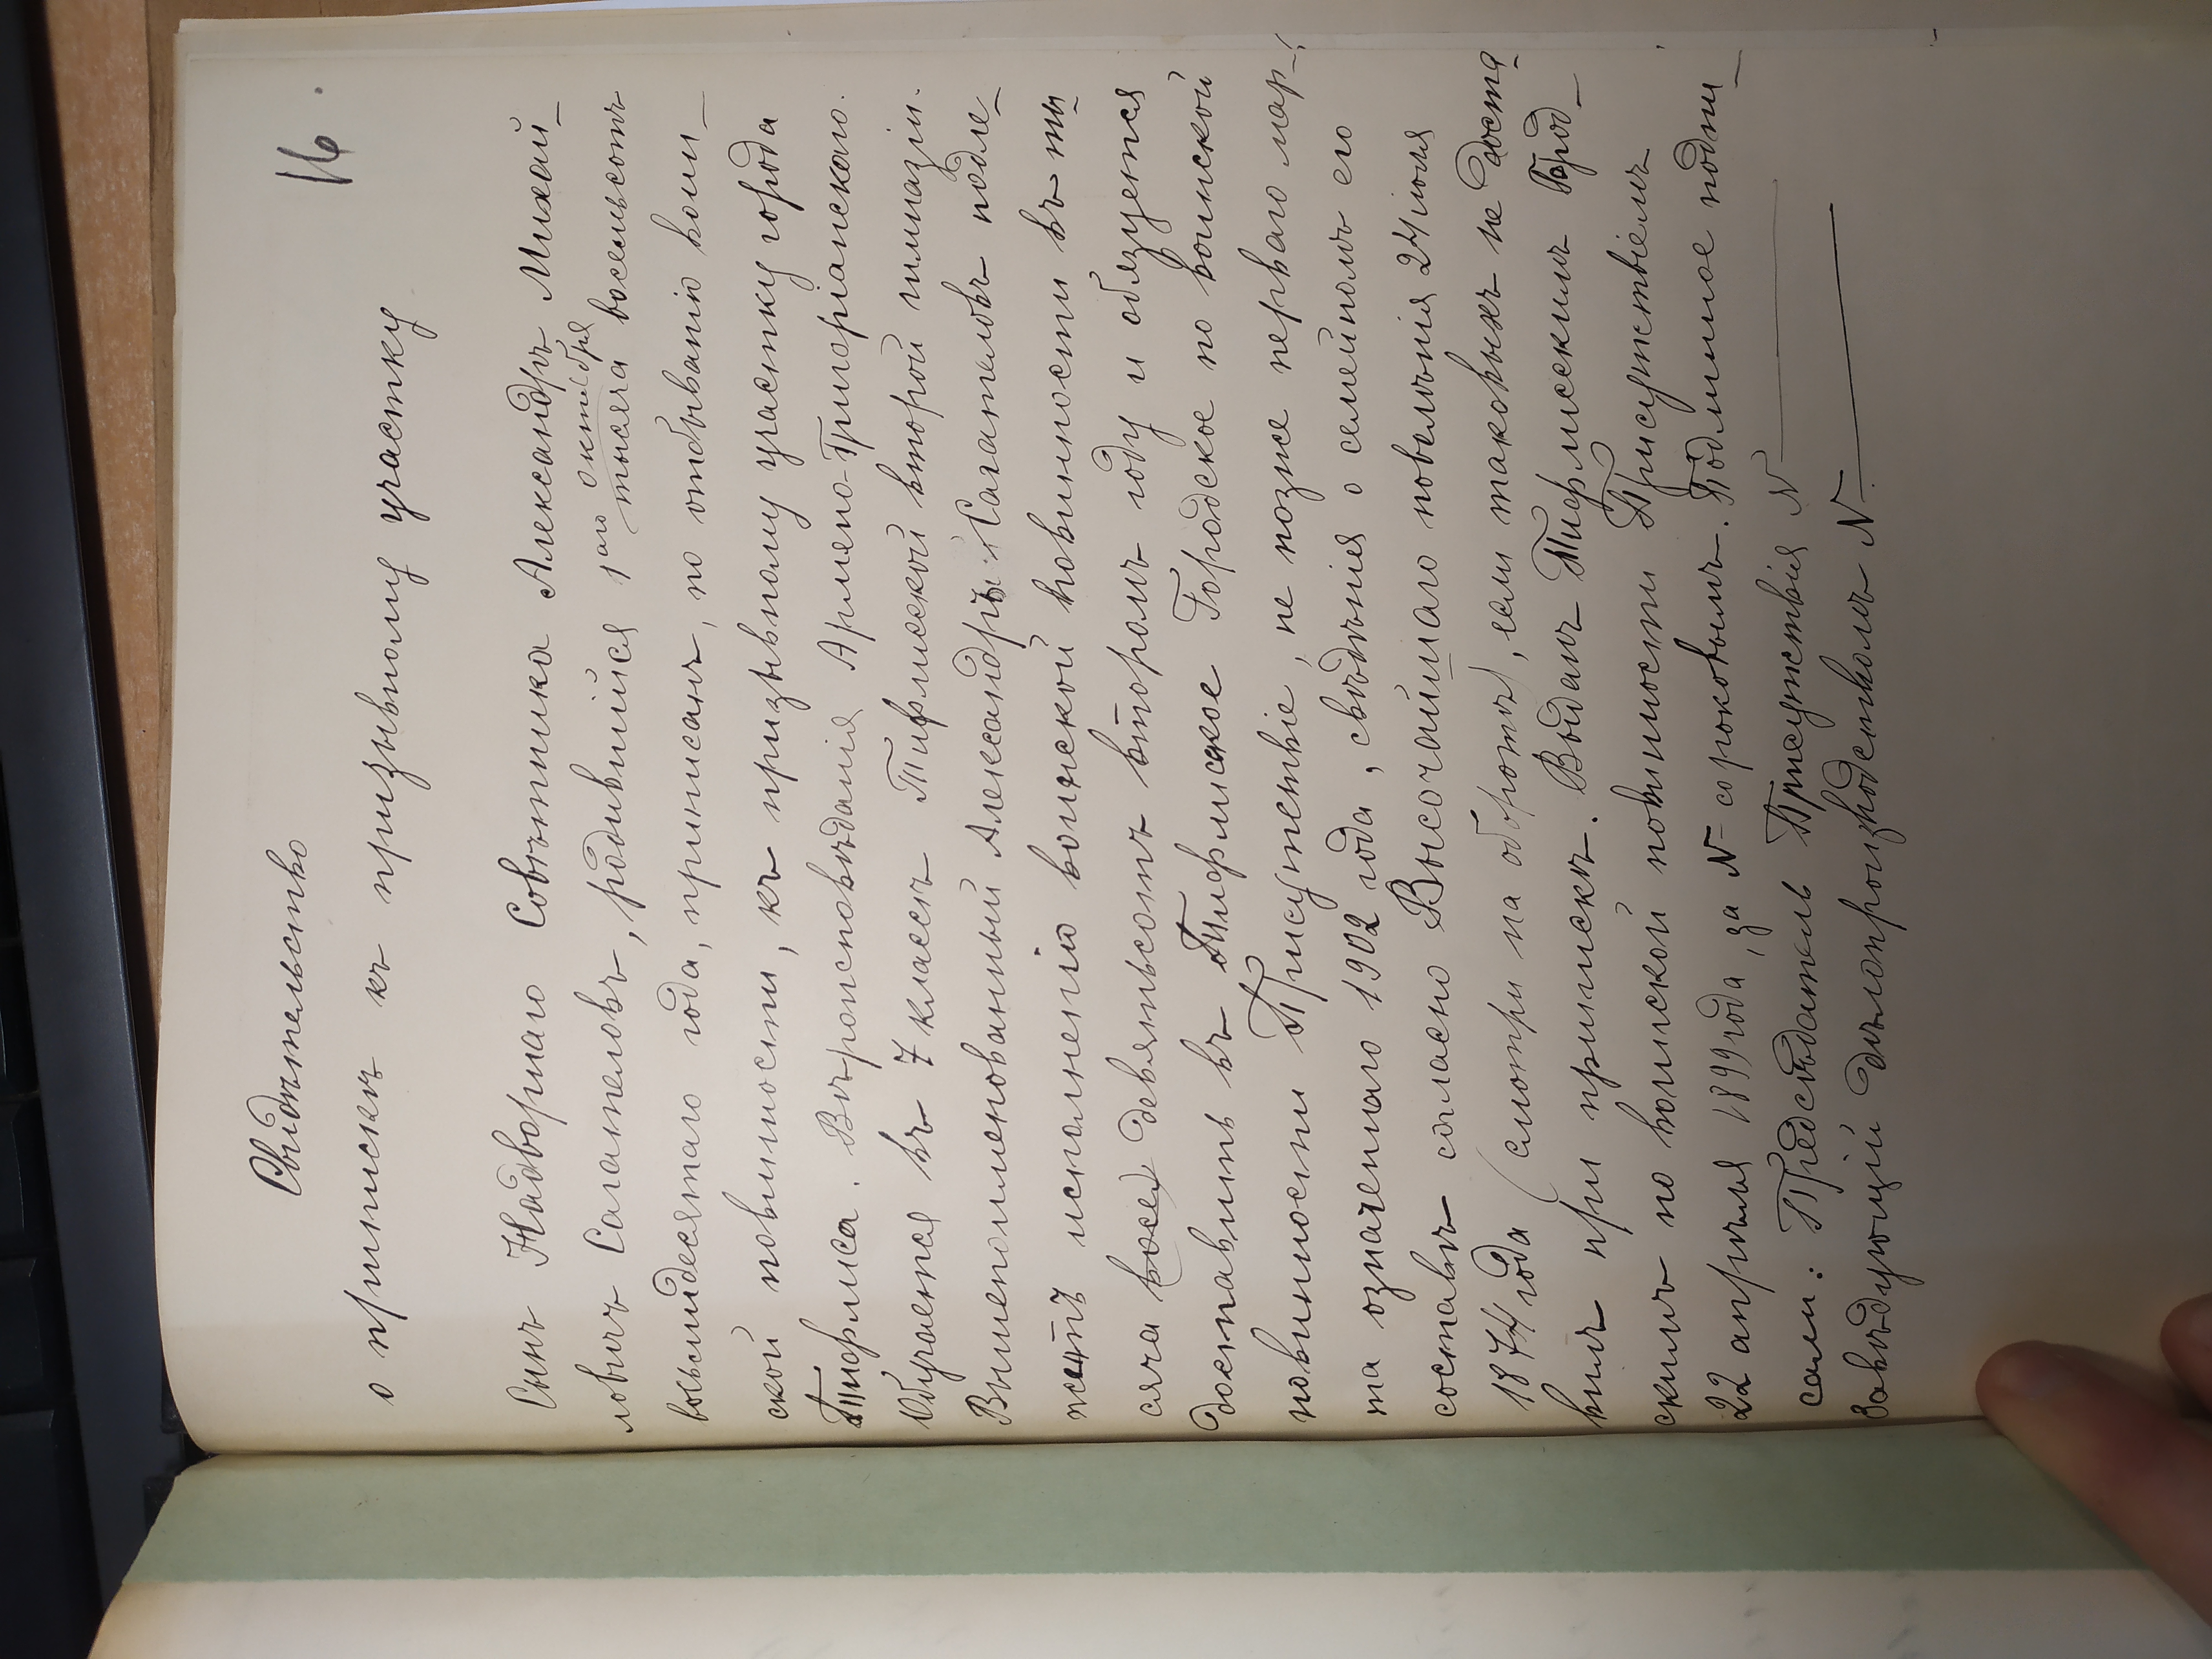 16.
Свидѣтельство
о припискѣ къ призывному участку
Сынъ Надворнаго Совѣтника Александръ Михай-
ловичъ Сагателовъ, родившійся 1аго октября тысяча восемьсотъ
восьмидесятаго года, приписанъ, по отбыванію воин-
ской повинности, къ призывному участку города
Тифлиса. Вѣроисповѣданія Армено-Григоріанскаго.
Обучается въ 7 классѣ Тифлисской второй гимназіи.
Вышепоименованный Александръ Сагателовъ подле-
житъ исполненію воинской повинности въ ты-
сяча восем девятьсотъ второмъ году и обязуется
доставить въ Тифлисское Городское по воинской
повинности Присутствіе, не позже перваго мар-
та означеннаго 1902 года, свѣдѣнія о семейномъ его
составѣ согласно Высочайшаго повелѣнія 24 іюля
1874 года (смотри на оборотѣ), если таковыхъ не доста-
вилъ при припискѣ. Выданъ Тифлисскимъ Город-
скимъ по воинской повинности Присутствіемъ
22 апрѣля 1899 года, за № сороковымъ. Подлинное подпи-
сали: Предсѣдатель Присутствія N
Завѣдующій дѣлопроизводствомъ N